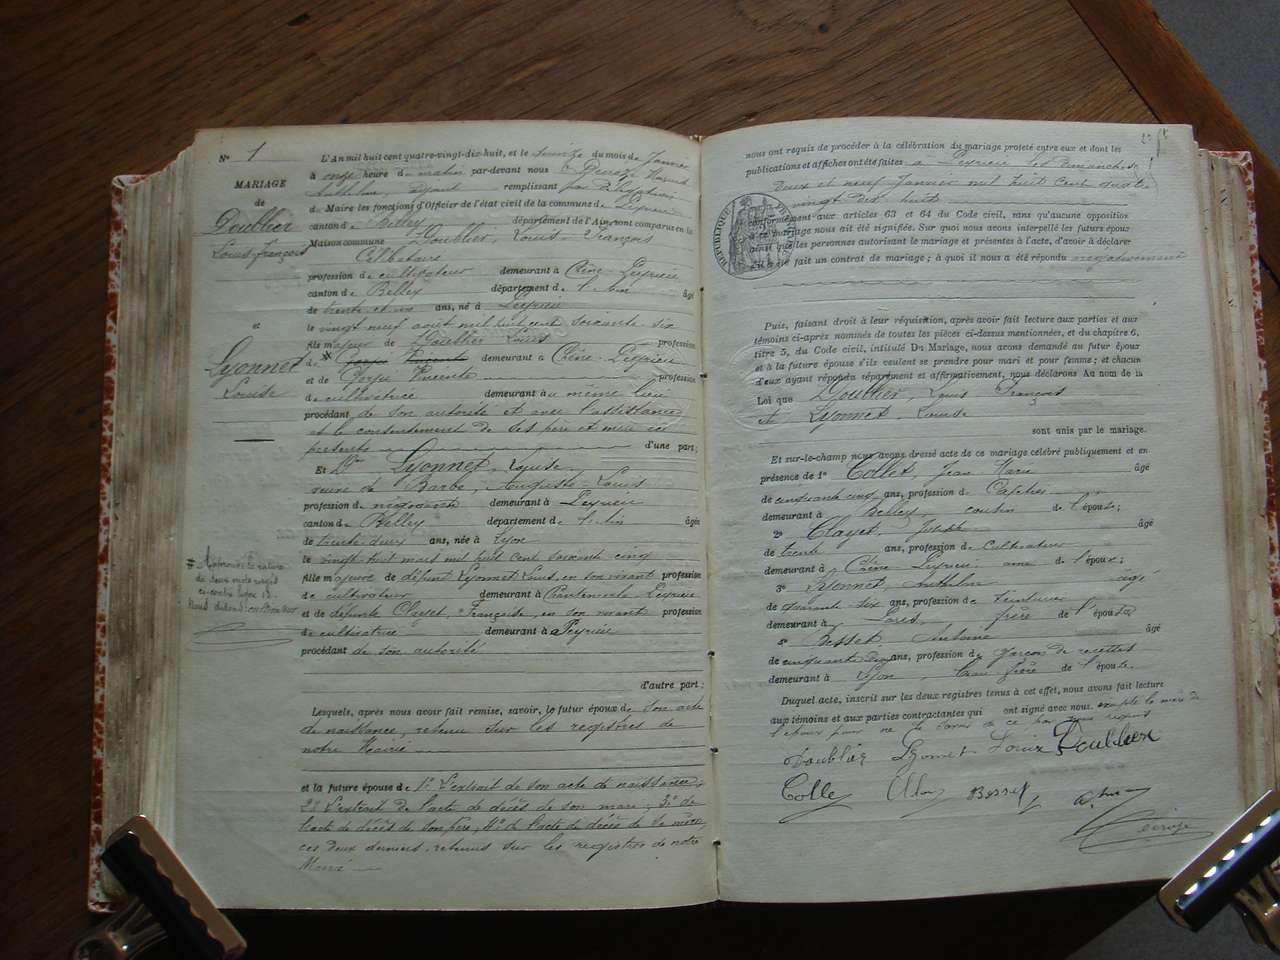 N° 1
MARIAGE
de
Doublier
Louis-François
et
Lyonnet
Louise
L'An mil huit cent quatre-vingt-dix-huit, et le seize du mois de Janvier
à onze heure du matin par-devant nous
remplissant par
de Maire les fonctions d'Officier de l'état civil de la commune de Peyrieu
canton de Belley département de l'Ain, sont comparus en la
Maison commune Doublier, Louis-François
Célibataire
profession de cultivateur demeurant à Chêne-Peyrieu
canton de Belley département de l'Ain âgé
de trente et un ans, né à Peyrieu
le vingt neuf août mil huit cent soixante six
fils majeur de Doublier Louis profession
de demeurant à Chêne-Peyrieu
et de profession
de cultivatrice demeurant au même lieu
procédant de son autorité et avec l'assistance
et le consentement de ses père et mère ici
présents d'une part;
Et Lyonnet, Louise
veuve de Barbe, Auguste-Louis
profession de négociante demeurant à Peyrieu
canton de Belley département de l'Ain âgée
de trente deux ans, née à Lyon
le vingt huit mars mil huit cent soixante cinq
fille majeure de défunt Lyonnet Louis, en son vivant profession
de cultivateur demeurant à Peyrieu
et de défunte Clayet, Françoise, en son vivant profession
de cultivatrice demeurant à Peyrieu
procédant de son autorité
d'autre part;
Lesquels, après nous avoir fait remise, savoir, le futur époux de son acte
de naissance, retenu sur les registres de
notre Mairie
et la future épouse de 1° l'extrait de son acte de naissance,
2° l'extrait de l'acte de décès de son mari, 3° de
l'acte de décès de son père, 4° de l'acte de décès de sa mère,
ces deux derniers, retenus sur les registres de notre
Mairie
nous ont requis de procéder à la célébration du mariage projeté entre eux et dont les
publications et affiches ont été faites à Peyrieu les Dimanches
deux et neuf Janvier mil huit cent quatre
vingt dix huit
conformément aux articles 63 et 64 du Code civil, sans qu'aucune opposition
à ce mariage nous ait été signifiée. Sur quoi nous avons interpellé les futurs époux
ainsi que les personnes autorisant le mariage et présentes à l'acte, d'avoir à déclarer
s'il a été fait un contrat de mariage; à quoi il nous a été répondu négativement
Puis, faisant droit à leur réquisition, après avoir fait lecture aux parties et aux
témoins ci-après nommés de toutes les pièces ci-dessus mentionnées, et du chapitre 6,
titre 5, du Code civil, intitulé DU MARIAGE, nous avons demandé au futur époux
et à la future épouse s'ils veulent se prendre pour mari et pour femme; et chacun
d'eux ayant répondu séparément et affirmativement, nous déclarons Au nom de la
Loi que Doublier, Louis François
et Lyonnet, Louise
sont unis par le mariage.
Et sur-le-champ nous avons dressé acte de ce mariage célébré publiquement et en
présence de 1° Collet, Jean Marie âgé
de cinquante cinq ans, profession de
demeurant à Belley, cousin de l'épouse;
2° Clayet, Joseph âgé
de trente ans, profession de cultivateur
demeurant à Chêne Peyrieu de l'époux;
3° Lyonnet, Anthelme âgé
de quarante six ans, profession de
demeurant à Paris, frère de l'épouse
4° Besset Antoine âgé
de cinquante ans, profession de garçon de recettes
demeurant à Lyon, beau frère de l'épouse.
Duquel acte, inscrit sur les deux registres tenus à cet effet, nous avons fait lecture
aux témoins et aux parties contractantes qui ont signé avec nous, excepté la mère de
l'époux pour ne le savoir de ce par nous requis
Doublier Lyonnet Louise Doublier